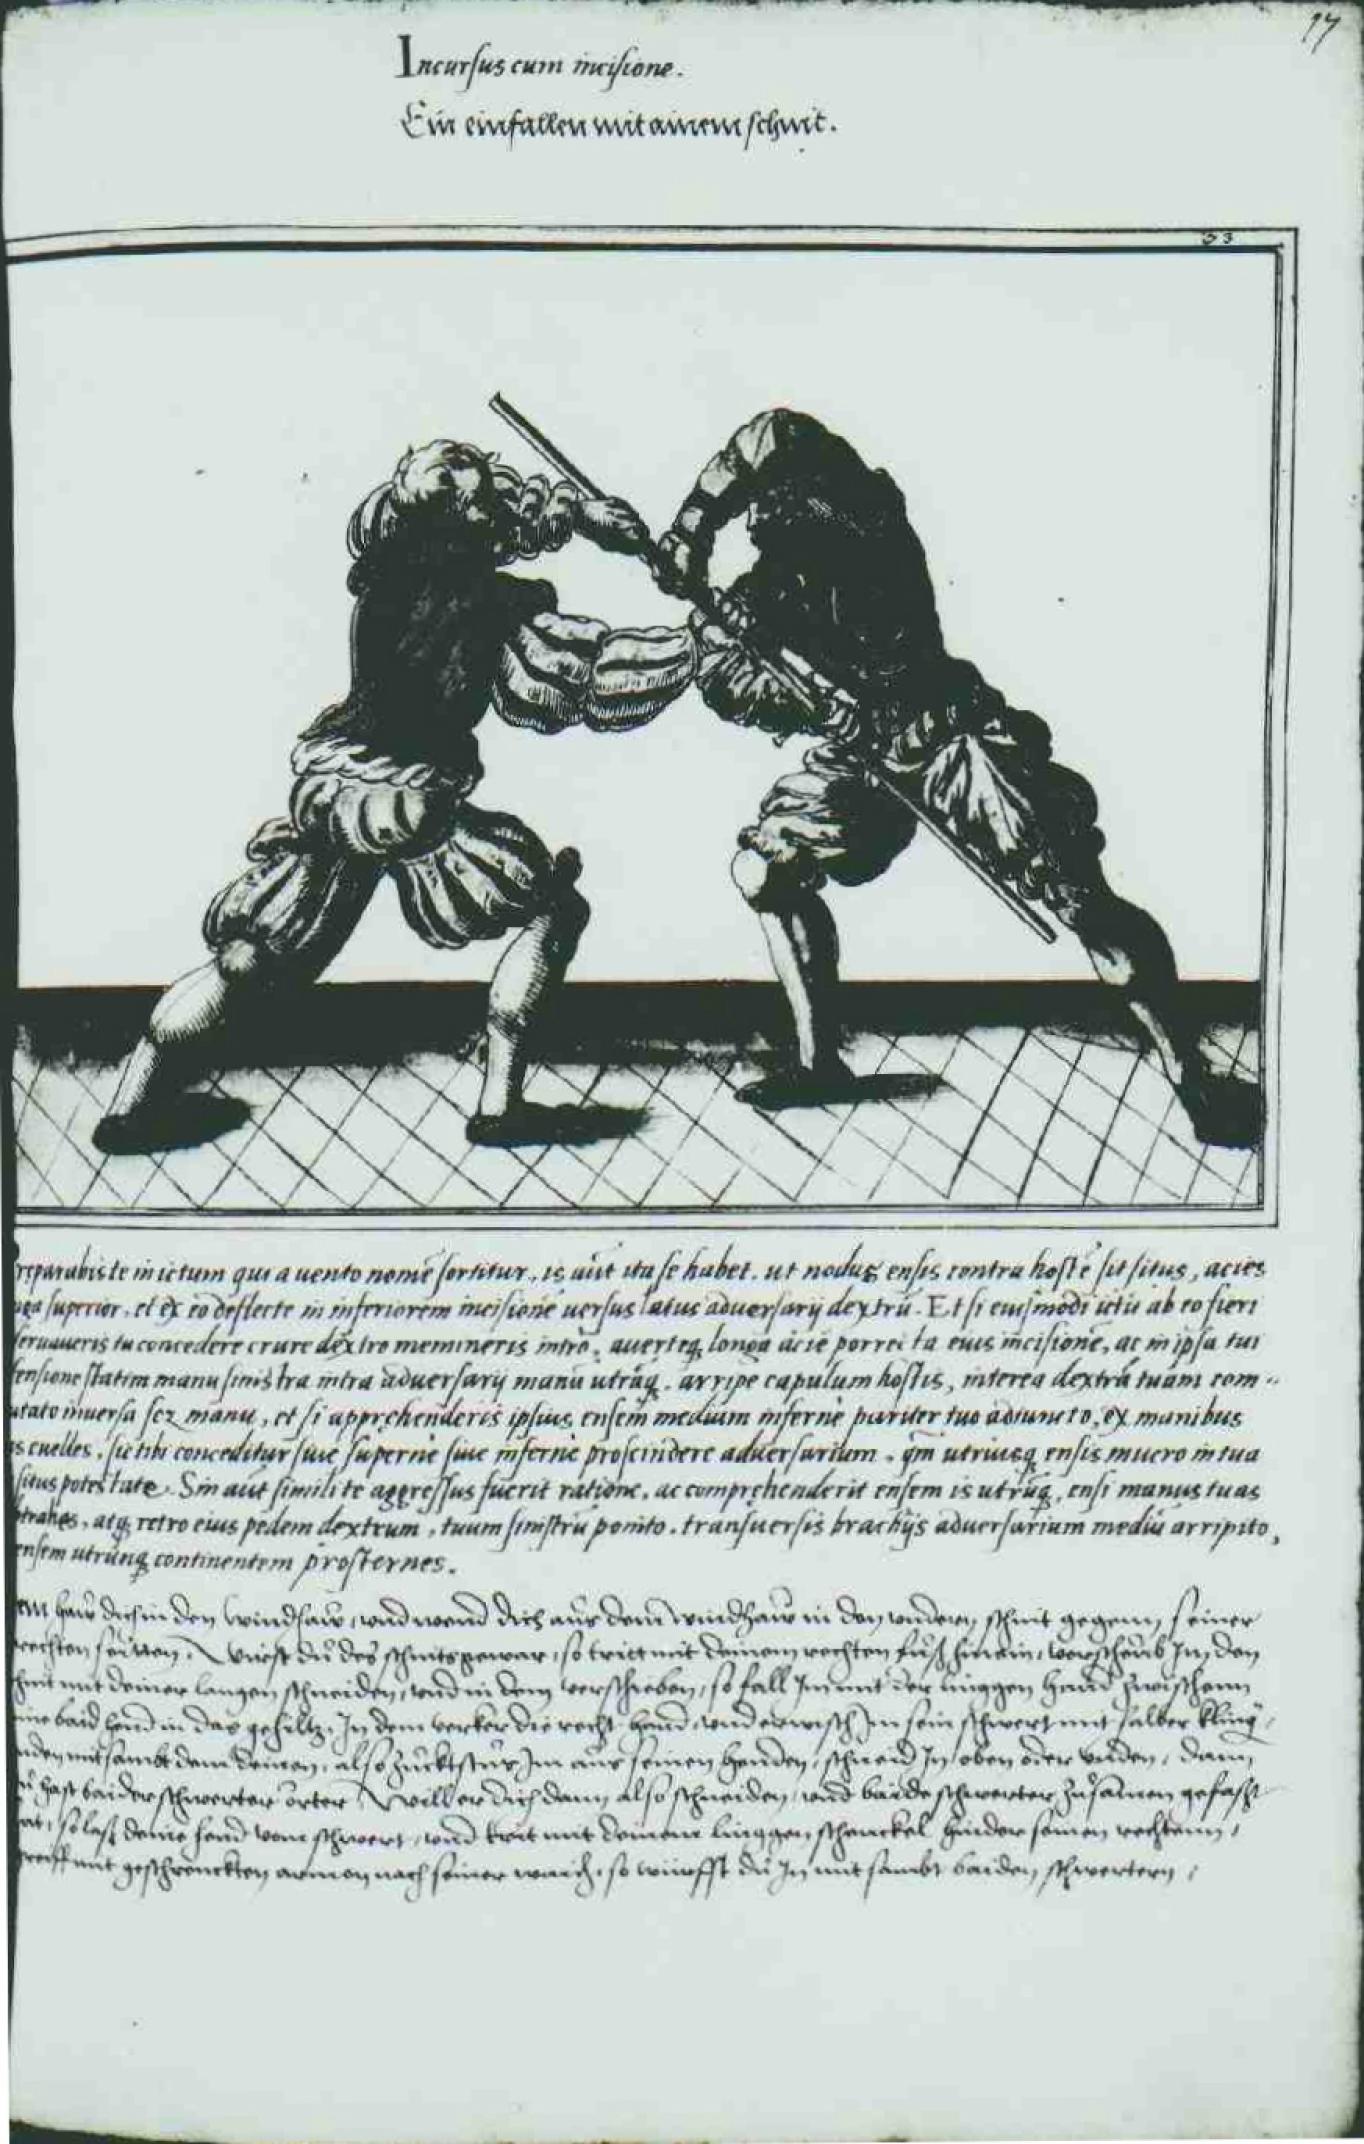 17
Incursus cum incisione.
Ein einfallen mit ainem schnit.
33
reparabis te in ictum qui a uento nomē sortitur, is aūt ita se habet. ut nodus ensis contra hostē sit situs, acies
superior, et ex eo deflecte in inferiorem incisionē uersus latus aduersarij dextrū. Et si eiusmodi ictū ab eo fieri
seruaueris tu concedere crure dextro memineris intro, auerteq longa acie porrecta eius incisionē, ac in ipsa tui
fensione statim manu sinistra intra aduersarij manū utrāq. arripe capulum hostis, interea dextrā tuam com-
utato inuersa manu, et si apprehenderis ipsius ensem medium inferne pariter tuo adiuncto, ex manibus
is euelles, sic tibi conceditur siue superne siue inferne proscindere aduersarium. qm̄ utriusq ensis mucro in tua
situs potestate. Sin aūt simili te aggressus fuerit ratione, ac comprehenderit ensem is utrūq, ensi manus tuas
trahes, atq retro eius pedem dextrum, tuum sinistrū ponito. transuersis brachijs aduersarium mediū arripito,
ensem utrunq continentem prosternes.
haw dich in den windhaw, vnd wend dich aus dem windhaw in den vndern schnit gegenn seiner
rechten seitten. Wirst du des schnits gewar, so tritt mit deinem rechten fuß hinein, verscheub Im den
schnit mit deiner langen schneiden, vnd in dem verschieben, so fall Im mit der linggen hand zwischenn
seine baid hend in das gehiltz. In dem verker die recht hand, vnd erwisch Im sein schwert mit halber kling,
vnden mit sambt dem deinen, also zuckstus Im aus seinen henden, schneid In oben oder vnden, dann
du hast baider schwerter örter. Will er dich dann also schneiden, vnd baide schwerter zusamen gefasst
hat, so laß deine hend vom schwert, vnd trit mit deinem linggen schenckel hinder seinen rechtenn,
greiff mit geschrenckten armen nach seiner waich, so würffst du In mit sambt baiden schwertern,